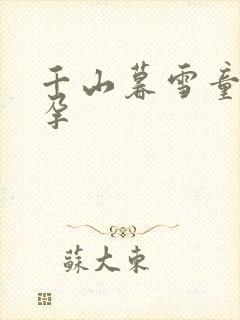 千山暮雪童
孕
蘇大東